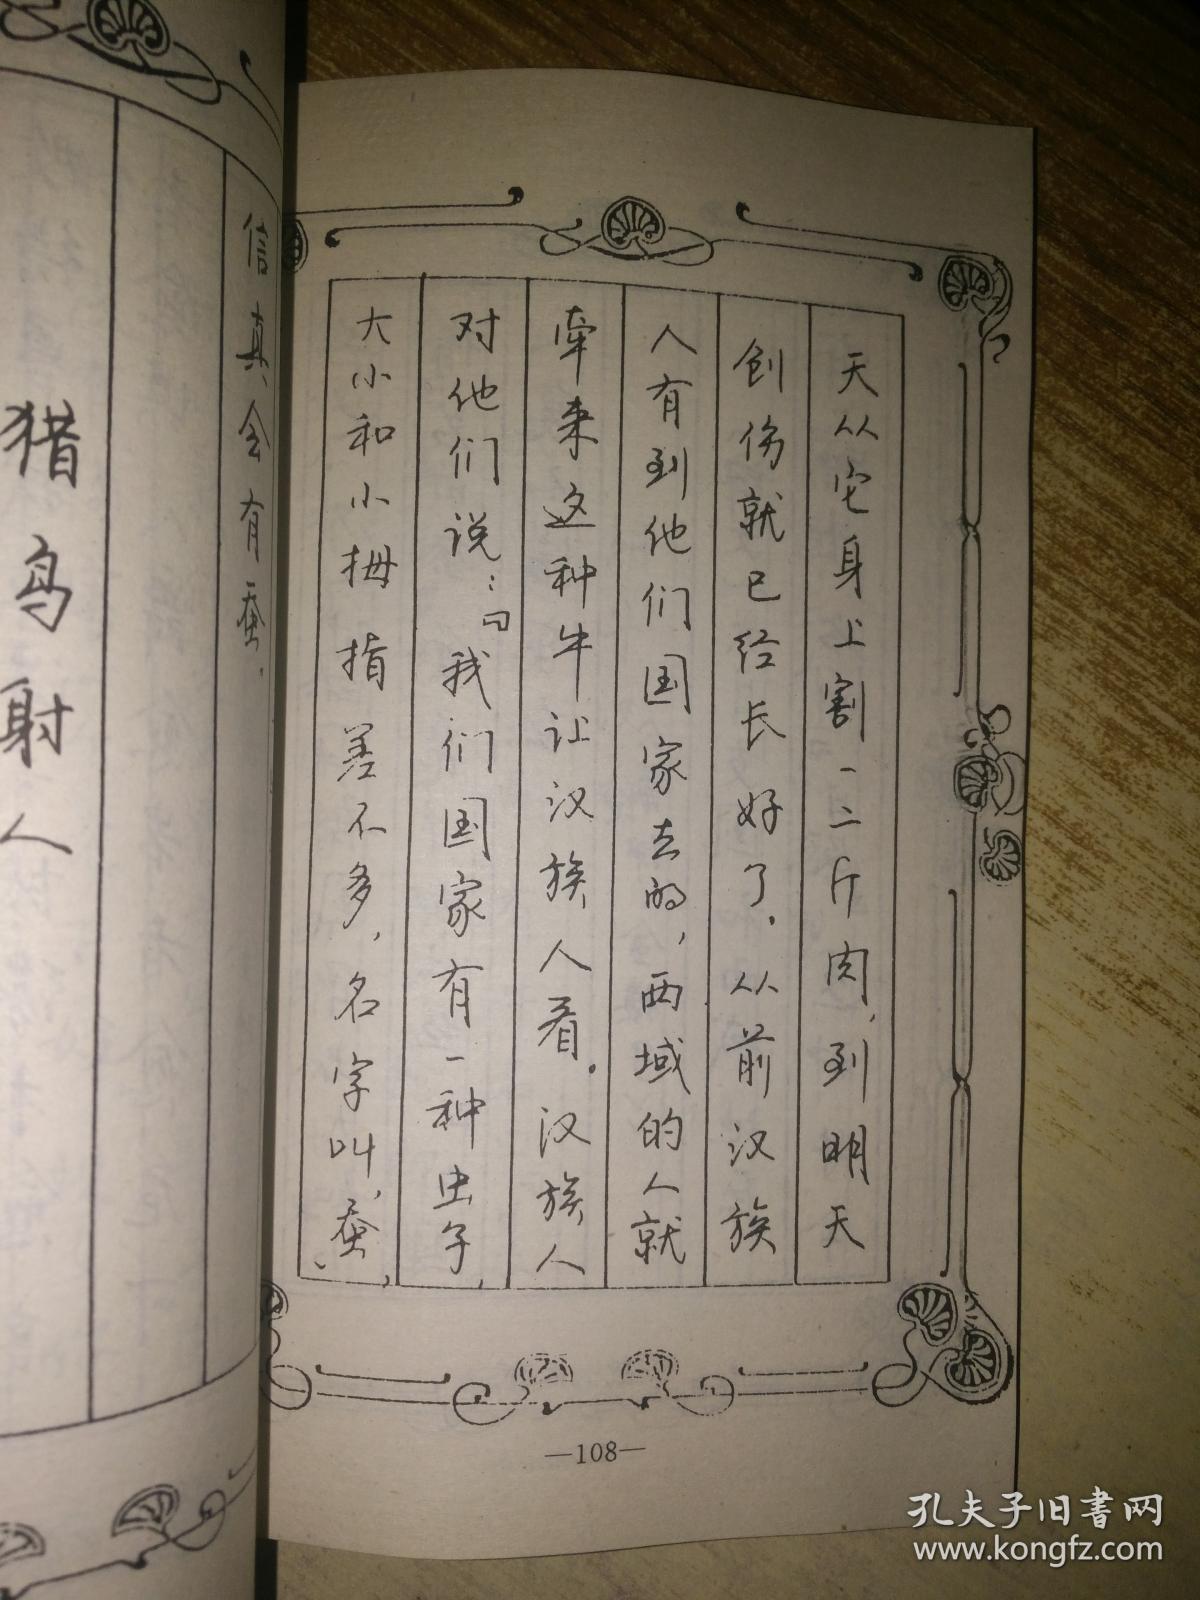 天从它身上割一二斤肉，到明天
创伤就已经长好了。从前汉族
人有到他们国家去的，西域的人就
牵来这种牛让汉族人看。汉族人
对他们说：“我们国家有一种虫子，
大小和小拇指差不多，名字叫‘蚕’，
信真会有蚕。
猎鸟射人
—108—
孔夫子旧书网
www.kongfz.com